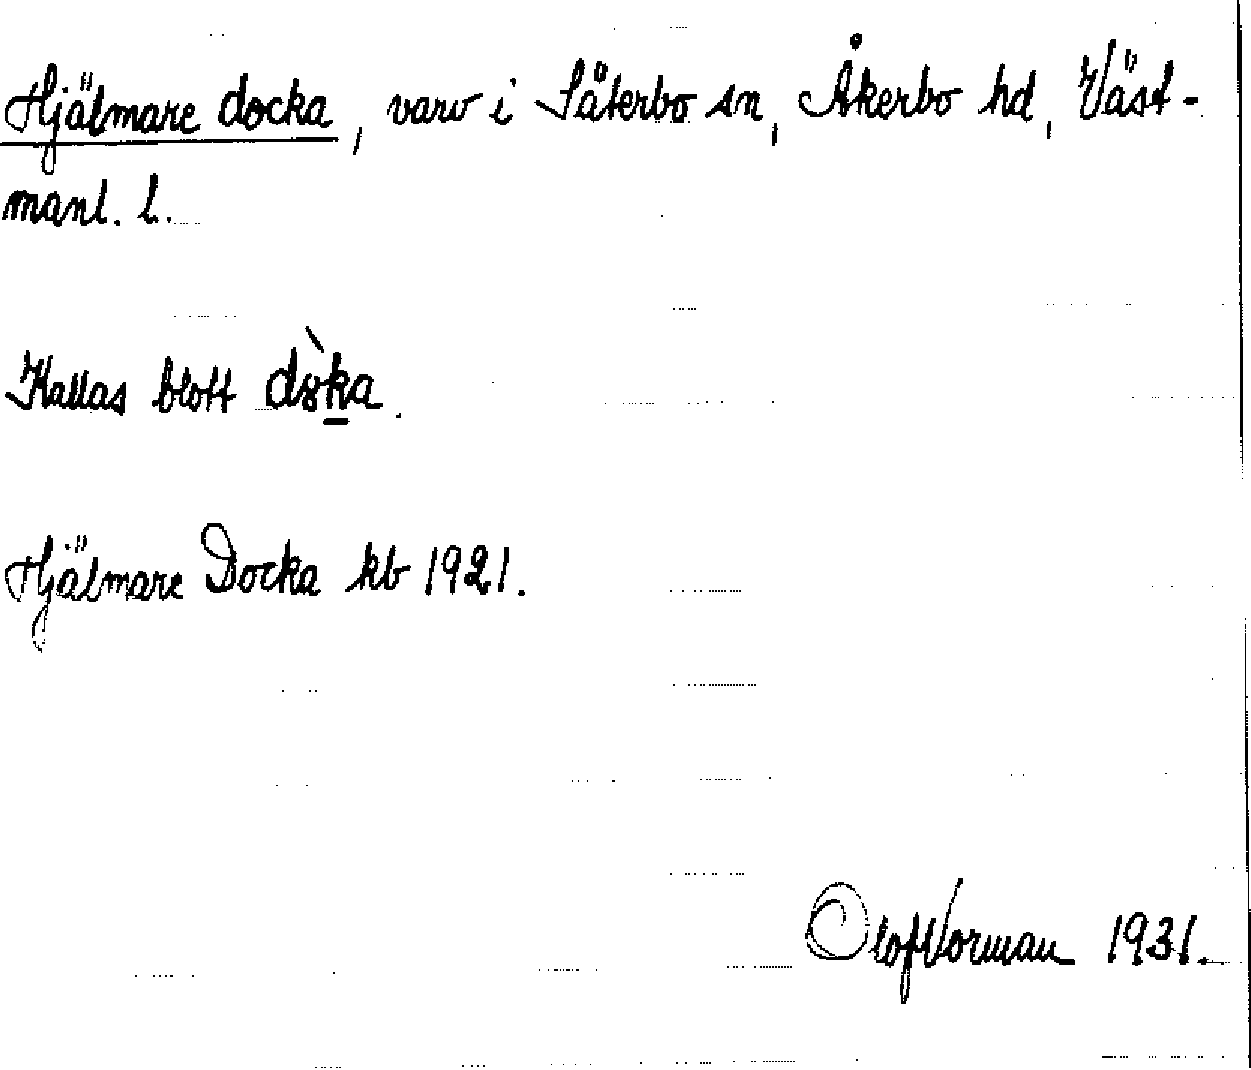 Hjälmare docka, varv i Såterbo sn, Åkerbo hd, Väst-
manl. l.
Kallas blott
Hjälmare Docka kb 1921.
Olof Norman 1931.